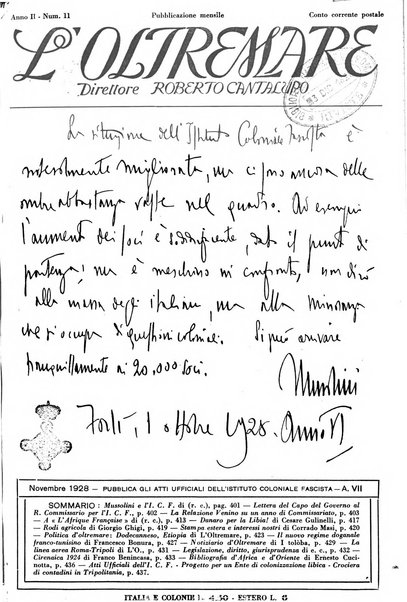 Anno II - Num. 11 Pubblicazione mensile Conto corrente postale
L'OLTREMARE
Direttore ROBERTO CANTALUPO
La situazione dell'Istituto Coloniale Fascista è
notevolmente migliorata, ma ci sono ancora delle
ombre abbastanza vaste nel quadro. Ad esempio
l'aumento dei soci è soddisfacente, dato il punto di
partenza; ma è meschino in confronto, non dirò
alla massa degli italiani, ma alla minoranza
che si occupa di questioni coloniali. Si può arrivare
tranquillamente ai 20.000 soci.
Mussolini
Forlì, 1 ottobre 1928. Anno VI
Novembre 1928 — PUBBLICA GLI ATTI UFFICIALI DELL'ISTITUTO COLONIALE FASCISTA — A. VII
SOMMARIO : Mussolini e l'I. C. F. di (r. c.), pag. 401 — Lettera del Capo del Governo al
R. Commissario per l'I. C. F., p. 402 — La Relazione Venino su un anno di Commissariato, p. 403
— A « L'Afrique Française » di (r. c.), p. 413 — Danaro per la Libia! di Cesare Gulinelli, p. 417
— Rodi agricola di Giorgio Ghigi, p. 419 — Stampa estera e interessi nostri di Corrado Masi, p. 420
— Politica d'oltremare: Dodecanneso, Etiopia di L'Oltremare, p. 423 — Il nuovo regime doganale
franco-tunisino di Francesco Bonura, p. 427 — Notiziario d'Oltremare di I tolôba, p. 429 — La
linea aerea Roma-Tripoli di L'O., p. 431 — Legislazione, diritto, giurisprudenza di e. c., p. 432 —
Cirenaica 1924 di Franco Benincasa, p. 433 — Bibliografia d'Africa e d'Oriente di Ernesto Cuci-
notta, p. 436 — Atti Ufficiali dell'I. C. F. - Progetto per un Ente di colonizzazione libica - Crociera
di contadini in Tripolitania, p. 437.
ITALIA E COLONIE L. 4.50 - ESTERO L. 8